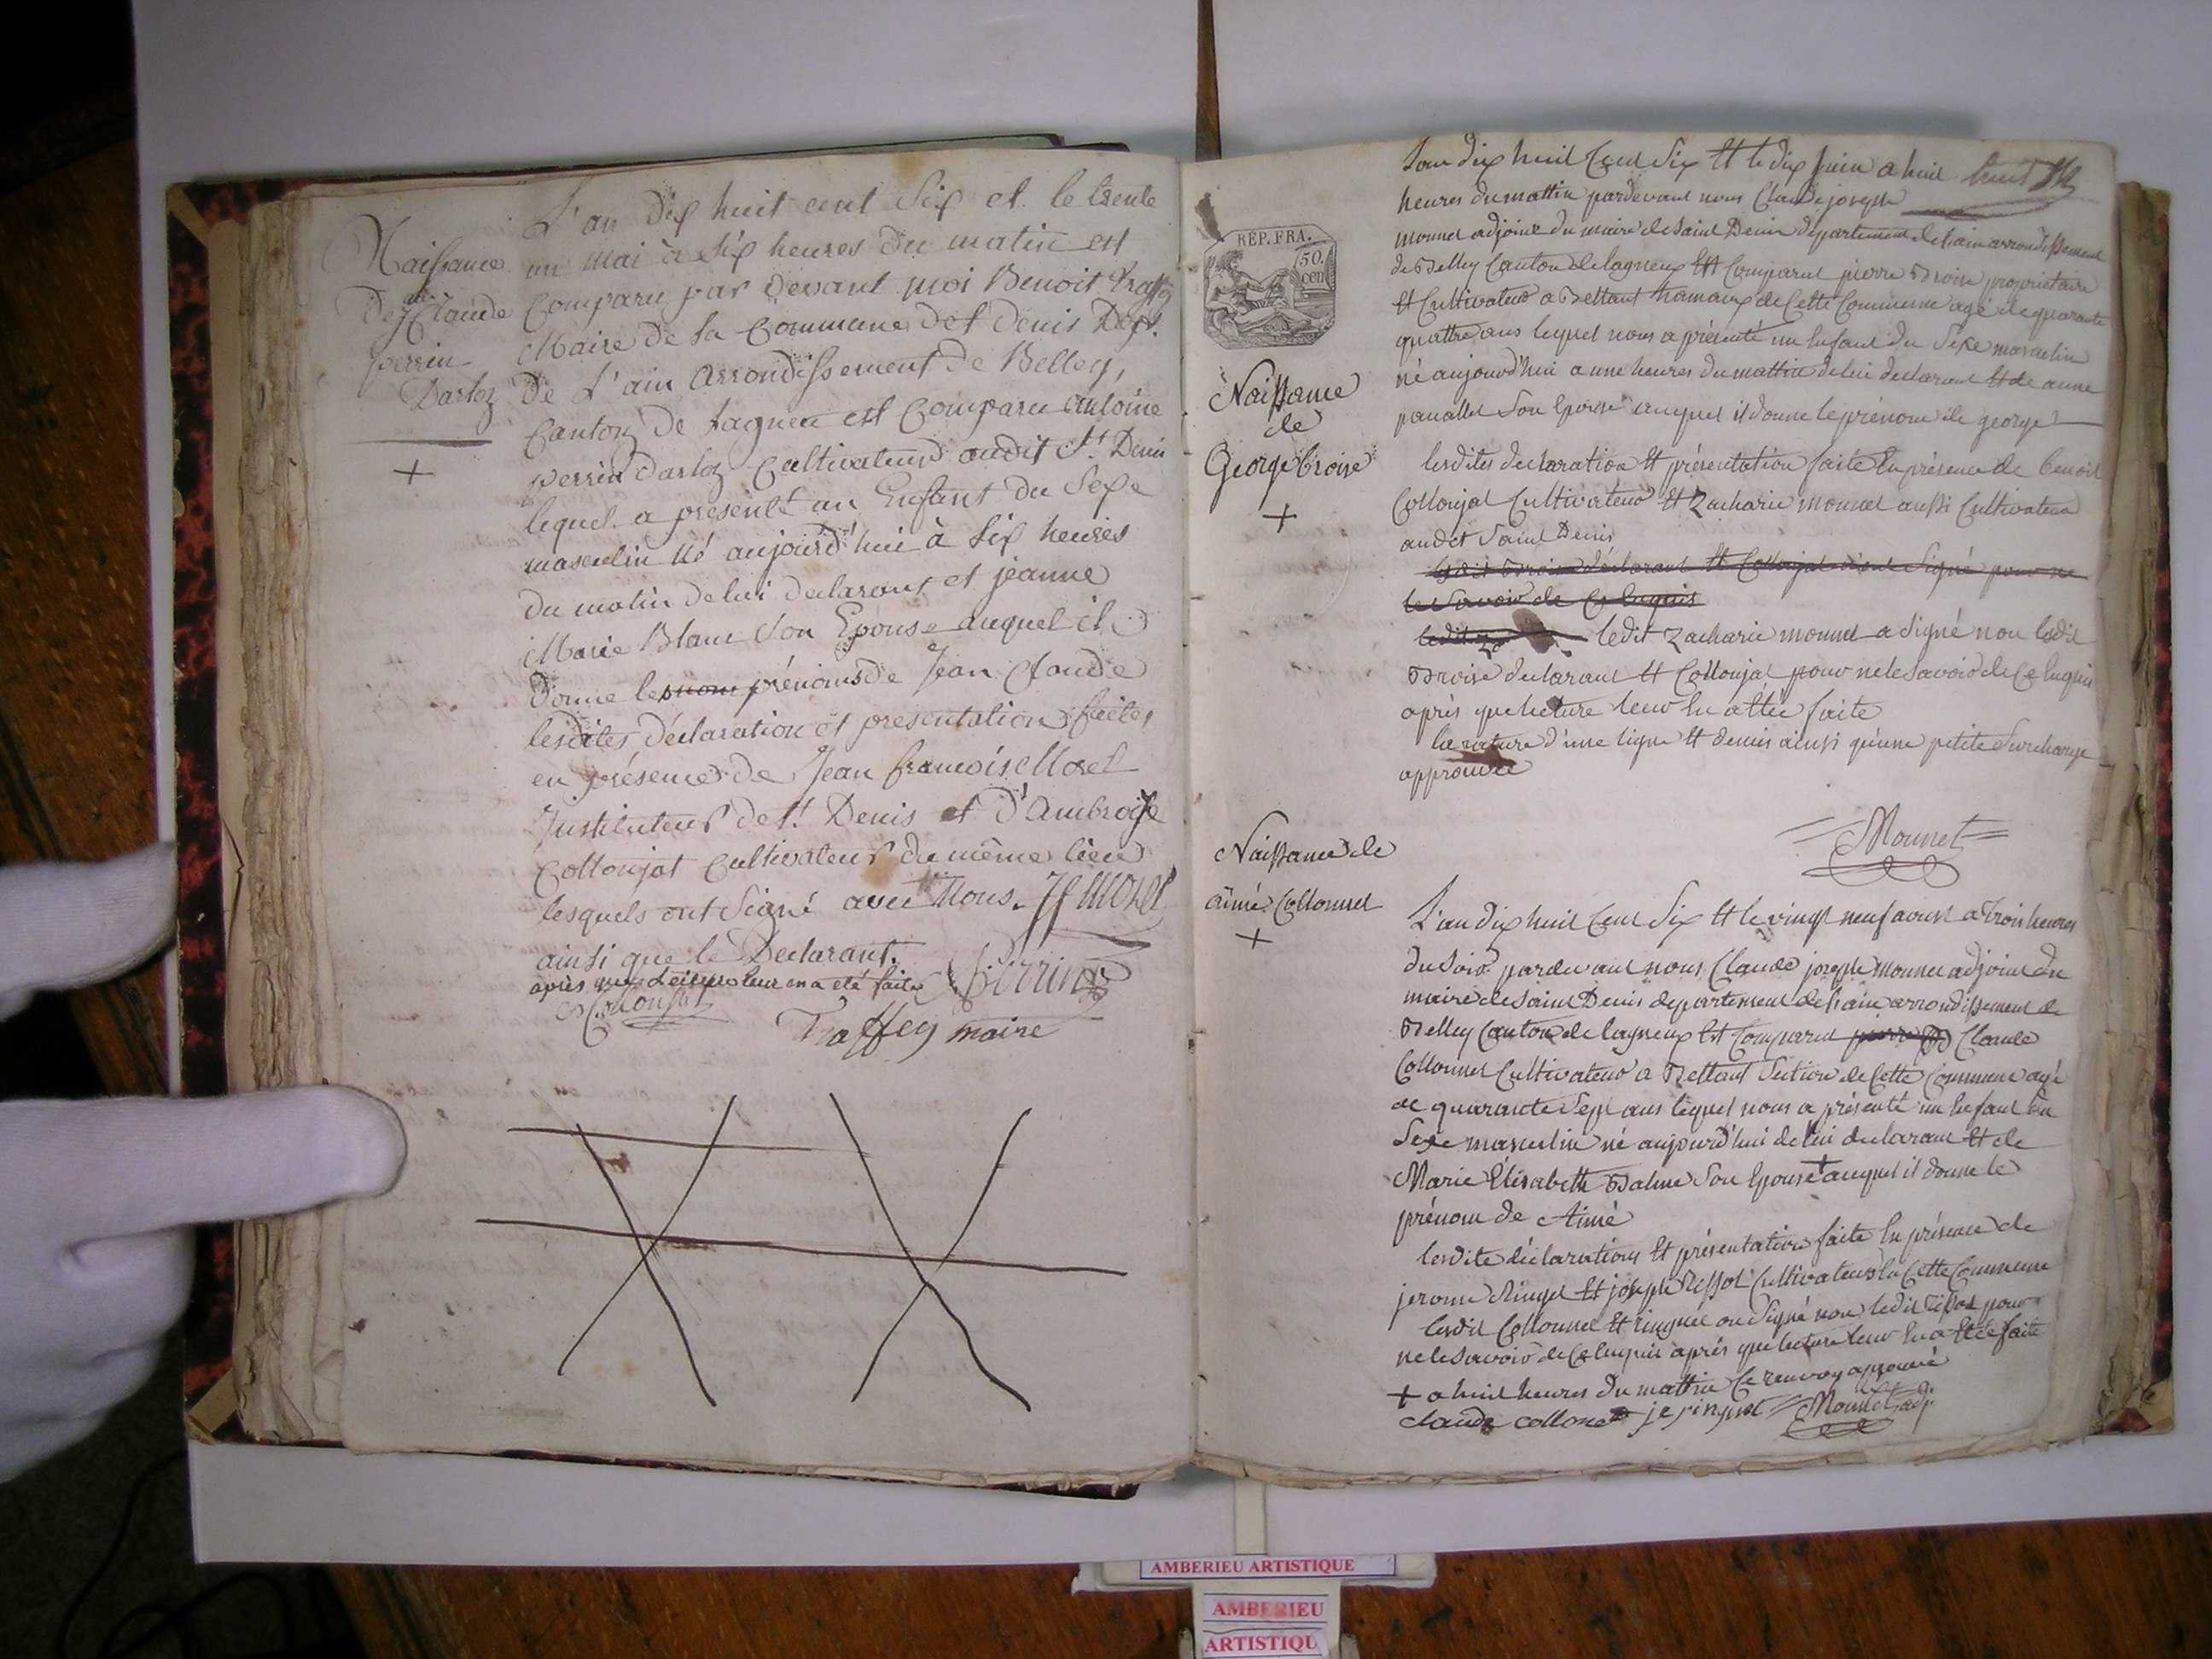 Naissance
de j.n Claude
perrin
Darloz
L'an dix huit cent six et le trente
un mai à six heures du matin est
Comparu par devant moi Benoit
Maire de la Commune de St Denis Dept.
De L'ain Arrondissement de Belley,
Canton de Lagneu est Comparu antoine
perrin darloz Cultivateur audit St. Denis
lequel a présenté un Enfant du Sexe
masculin né aujourd'hui à six heures
du matin de lui declarant et jeanne
Marie Blanc son Epouse auquel il
donne les nom prénoms de Jean Claude
lesdites déclaration et presentation faites
en présence de Jean françois Morel
Instituteur de St. Denis et d'Ambroise
Collonjat Cultivateur du même lieu
lesquels ont Signé avec Nous. Jf Morel
ainsi que le Declarant.
après que lecture leur en a été faite Perrin
Collonjat
Traffey maire
REP. FRA.
50.
cen
Naissance
de
George Broise
L'an dix huit Cent Six Et le dix juin a huit
heures du mattin pardevant nous Claude joseph
monnet adjoint du maire de saint Denis departement de l'ain arrondissement
de Belley Canton de lagneux Est Comparut pierre Broise proprietaire
Et Cultivateur a Bettant hamaux de Cette Commune agé de quarante
quattre ans lequel nous a présenté un Enfant du Sexe masculin
né aujourd'hui a une heures du mattin de lui declarant Et de anne
son Epouse auquel il donne le prénom de george
lesdites declaration Et présentation faite En présence de benoit
Collonjat Cultivateur Et Zacharie monnet aussi Cultivateur
audit Saint Denis
ledit Broise déclarant Et Collonjat n'ont Signé pour ne
le Savoir de Ce Enquis
ledit Za ledit Zacharie monnet a signé non ledit
Broise declarant Et Collonjat pour ne le Savoir de Ce Enquis
après que lecture leur En a Ettée faite
la rature d'une ligne Et demis ainsi qu'une petite Surcharge
approuvée
Monnet
Naissance de
aimé Collonnet
L'an dix huit Cent Six Et le vingt neuf aoust a Trois heures
du Soir pardevant nous Claude joseph Monnet adjoint du
maire de Saint Denis departement de l'ain arrondissement de
Belley Canton de lagneux Est Comparut Claude
Collonnet Cultivateur a Bettant Section de Cette Commune agé
de quarante Sept ans lequel nous a présenté un Enfant du
Sexe masculin né aujourd'hui de lui declarant Et de
Marie Elisabeth Balme Son Epouse + auquel il donne le
prénom de Aimé
lesdite déclarations Et présentation faite En présence de
jerome Ringuet Et joseph Tissot Cultivateurs En Cette Commune
lesdit Collonnet Et ringuet on Signé non ledit Tissot pour
ne le Savoir de Ce Enquis après que lecture leur En a Etée faite
+ a huit heures du mattin Ce renvoy approuvé
claude collonet je ringuet Monnet adj
AMBERIEU ARTISTIQUE
AMBERIEU
ARTISTIQU